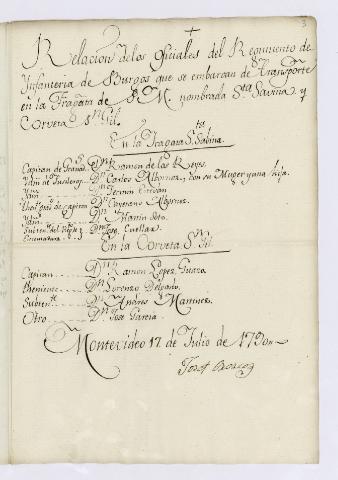 Relacion de los oficiales del Regimiento de
Infanteria de Burgos que se embarcan de Transporte
en la Fragata de S. M. nombrada Sta Savina y
Corveta Sn Gil.
En la Fragata Sta Sabina.
Capitan de Granads Dn Ramon de las Reyes.
Dn Carlos Albornoz, con su Muger y una hija.
Idm Dn Fermin Estevan
Dn Cayetano Albornoz
Idm Dn Martin Soto
Dn Josef Cuellar
En la Corveta Sn Gil.
Capitan Dn Ramon Lopez
Theniente Dn Lorenzo Delgado.
Subtente Dn Andres Martinez
Otro Dn Jose Garcia.
Montevideo 17 de Julio de
Josef